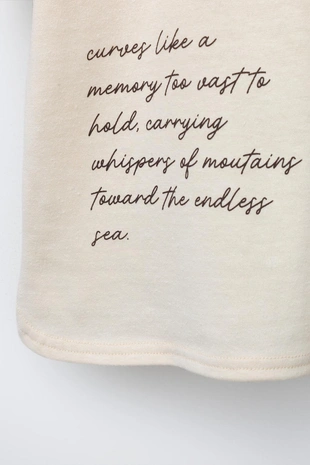 curves like a
memory too vast to
hold, carrying
whispers of moutains
toward the endless
sea.